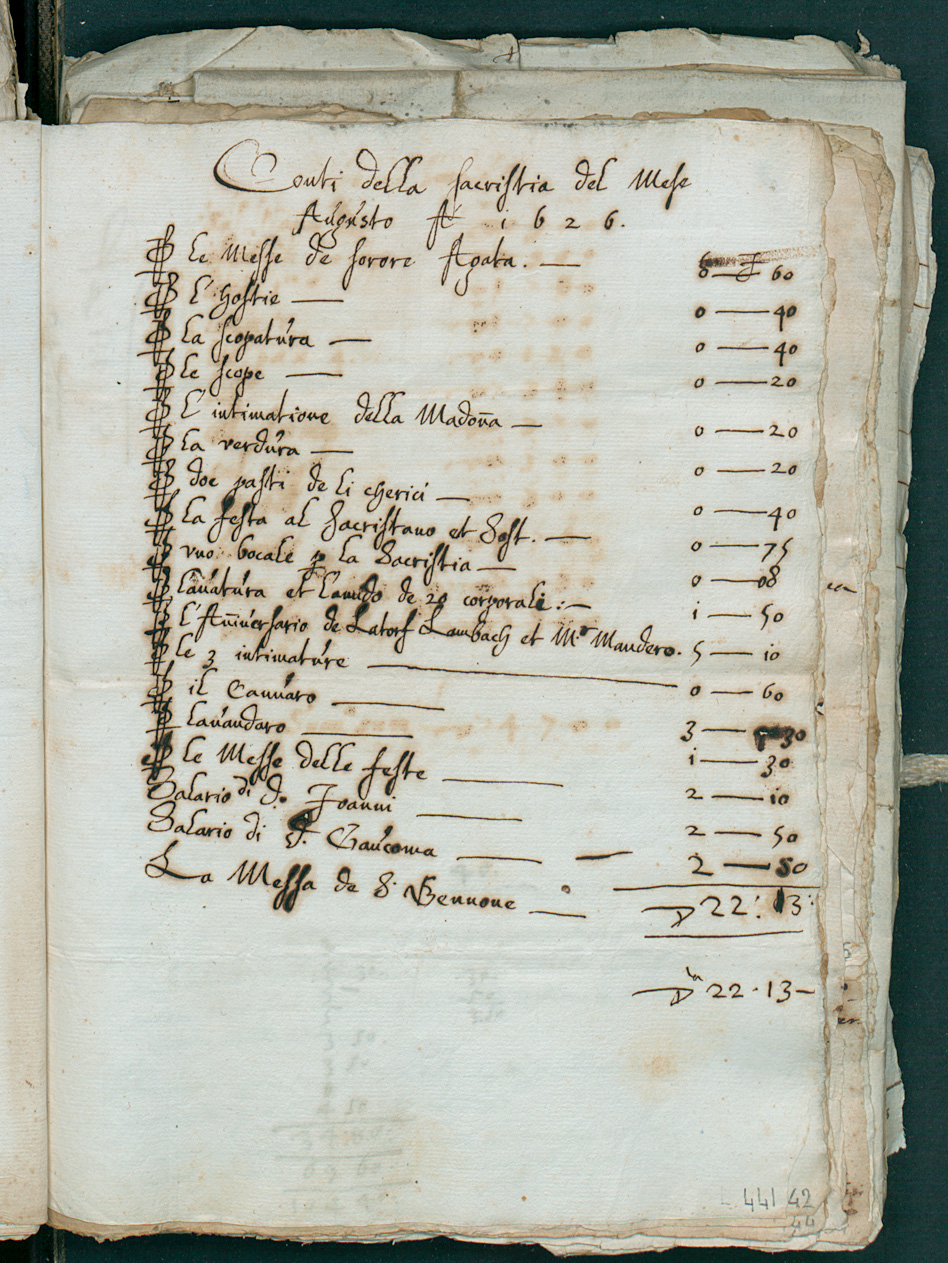 Conti della sacristia del Mese
Augusto A° 1626.
℔ le Messe de sorore Agata. — 0 — 60
℔ l'hostie — 0 — 40
℔ la scopatura — 0 — 40
℔ le scope — 0 — 20
℔ l'intimatione della Madoña — 0 — 20
℔ la verdura — 0 — 20
℔ doe pasti de li cherici — 0 — 40
℔ la festa al Sacristano et Sost. — 0 — 75
℔ vno bocale ꝑ la Sacristia — 0 — 08
℔ lauatura et l'amido de 20 corporali: — 1 — 50
℔ l'Añiuersario de Latorf Lambach et M.º Mandero. 5 — 10
℔ le 3 intimature — 0 — 60
℔ il Cannaro — 3 — 30
℔ lauandaro — 1 — 30
℔ le Messe delle feste — 2 — 10
Salario di S. Joanni — 2 — 50
Salario di S. Giaucoma — 2 — 50
La Messa de S. Bennone —
22: 13:
22 · 13 —
44 42
44